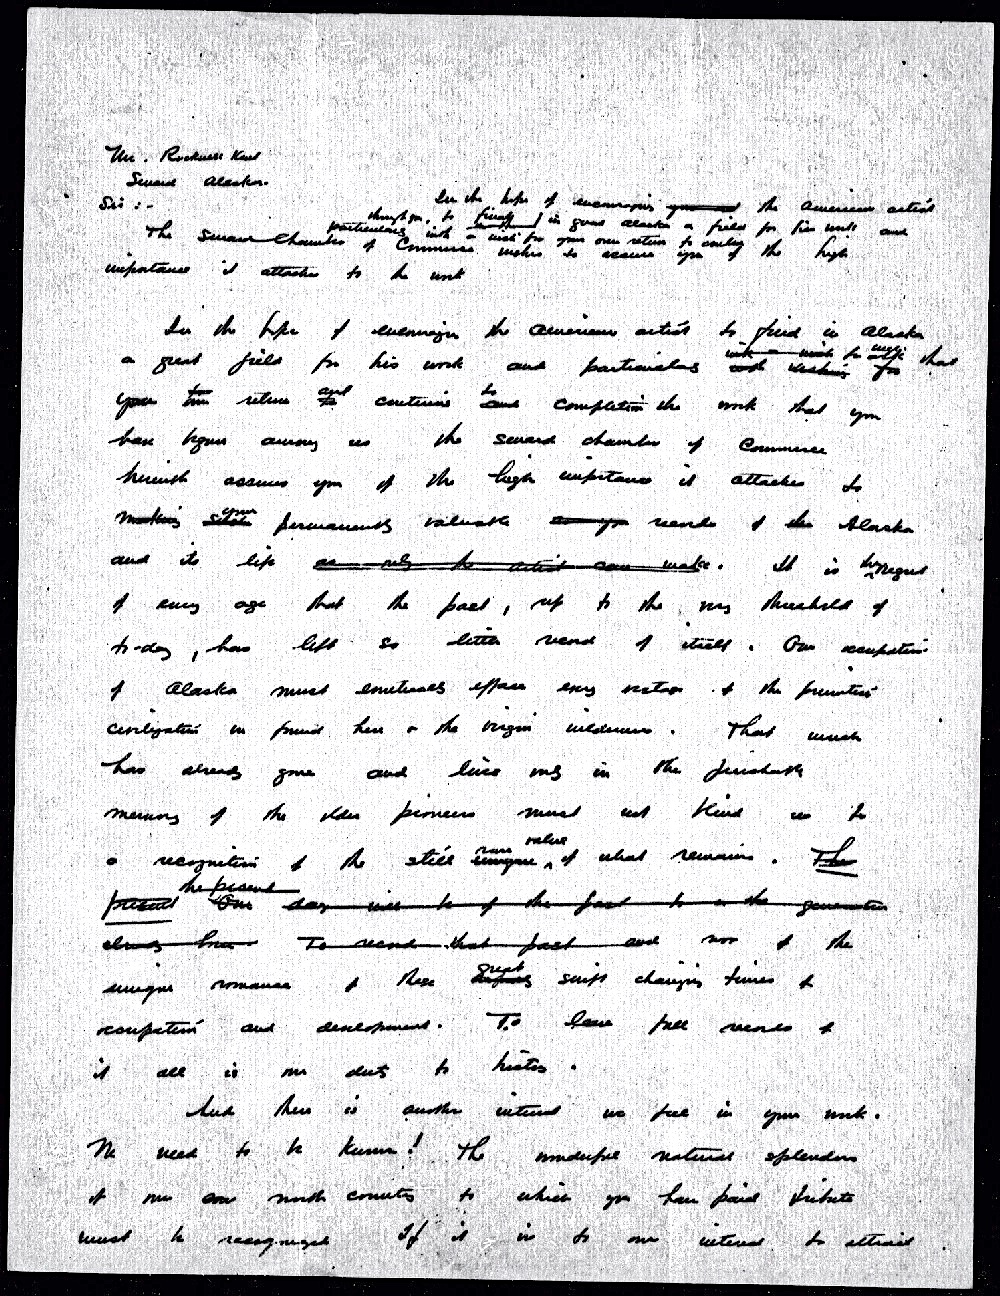 Mr. Rockwell Kent
Seward Alaska.
Sir :-
In the hope of encouraging the American artist
to find in great Alaska a field for his work and
particularly with a wish for your own return to
The Seward Chamber of Commerce wishes to assure you of the high
importance it attaches to the work
In the hope of encouraging the American artist to find in Alaska
a great field for his work and particularly with a wish for that
you return and continue to completion the work that you
have begun among us the Seward Chamber of Commerce
herewith assures you of the high importance it attaches to
making your permanently valuable records of the Alaska
and its life as only the artist can make. It is the regret
of every age that the past, up to the very threshold of
to-day, has left so little record of itself. Our occupation
of Alaska must entirely efface every vestige of the primitive
civilization we found here & the virgin wilderness. That much
has already gone and lives only in the perishable
memory of the older pioneers must not blind us to
a recognition of the still rare unique value of what remains. The
present the present Our day will be of the past to the generation
already born To record that past and now of the
unique romance of these great swift changing times of
occupation and development. To leave full records of
it all is our duty to history.
And there is another interest we feel in your work.
We need to be known! The wonderful natural splendors
of our own north country to which you have paid tribute
must be recognized If it is to our interest to attract